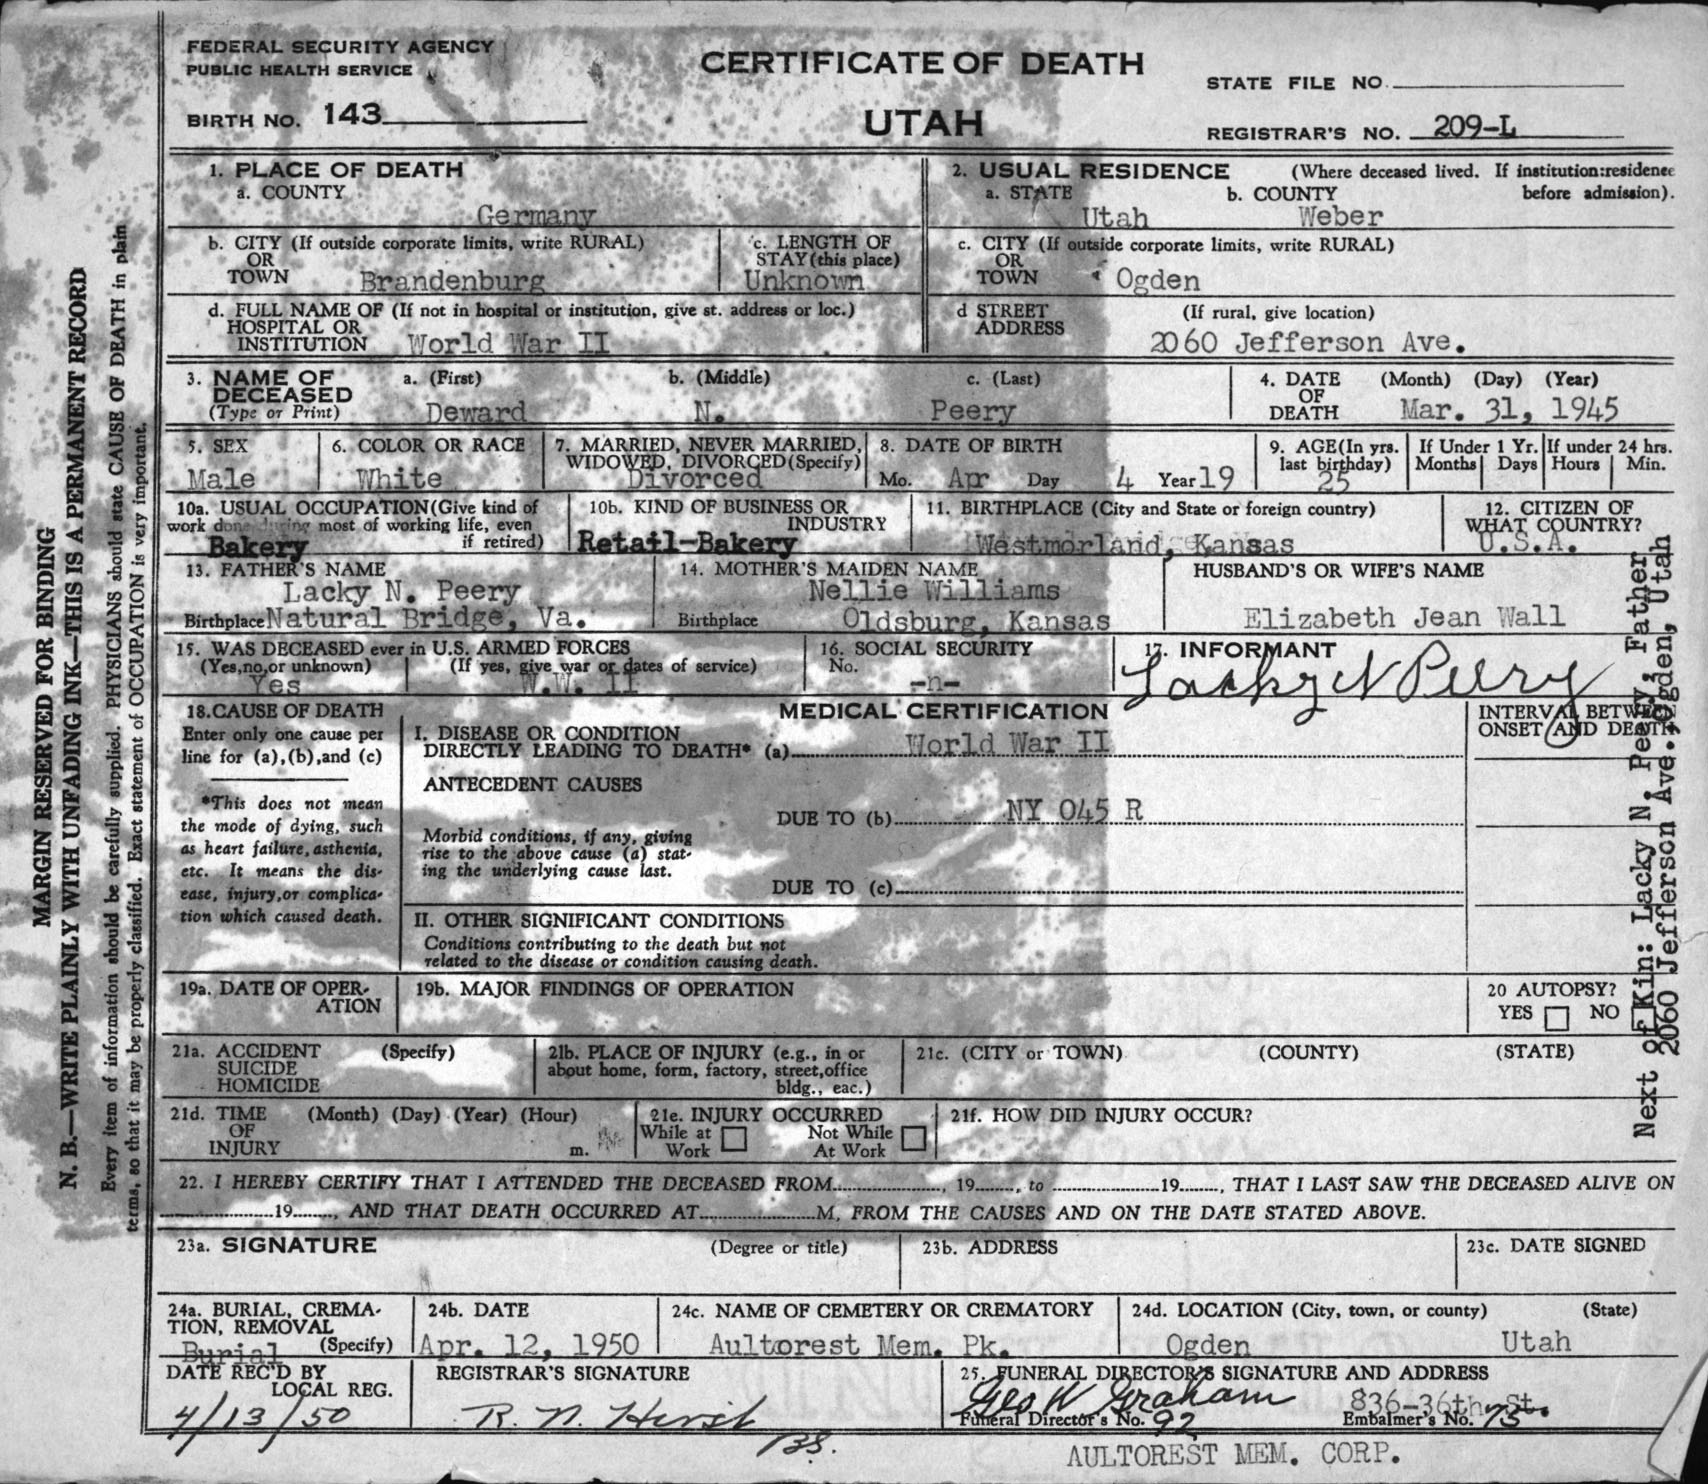 FEDERAL SECURITY AGENCY
PUBLIC HEALTH SERVICE
CERTIFICATE OF DEATH
UTAH
STATE FILE NO.
BIRTH NO. 143
REGISTRAR'S NO. 209-L
1. PLACE OF DEATH
a. COUNTY
Germany
2. USUAL RESIDENCE (Where deceased lived. If institution:residence before admission).
a. STATE b. COUNTY
Utah Weber
b. CITY (If outside corporate limits, write RURAL)
OR
TOWN Brandenburg
c. LENGTH OF
STAY(this place)
Unknown
c. CITY (If outside corporate limits, write RURAL)
OR
TOWN Ogden
d. FULL NAME OF (If not in hospital or institution, give st. address or loc.)
HOSPITAL OR
INSTITUTION World War II
d STREET (If rural, give location)
ADDRESS
2060 Jefferson Ave.
3. NAME OF DECEASED
(Type or Print)
a. (First) b. (Middle) c. (Last)
Deward N. Peery
4. DATE OF DEATH (Month) (Day) (Year)
Mar. 31, 1945
5. SEX
Male
6. COLOR OR RACE
White
7. MARRIED, NEVER MARRIED,
WIDOWED, DIVORCED(Specify)
Divorced
8. DATE OF BIRTH
Mo. Apr Day 4 Year 19
9. AGE(In yrs. last birthday)
25
If Under 1 Yr.
Months Days
If under 24 hrs.
Hours Min.
10a. USUAL OCCUPATION(Give kind of
work done during most of working life, even
if retired)
Bakery
10b. KIND OF BUSINESS OR
INDUSTRY
Retail-Bakery
11. BIRTHPLACE (City and State or foreign country)
Westmorland, Kansas
12. CITIZEN OF
WHAT COUNTRY?
U.S.A.
13. FATHER'S NAME
Lacky N. Peery
Birthplace Natural Bridge, Va.
14. MOTHER'S MAIDEN NAME
Nellie Williams
Birthplace Oldsburg, Kansas
HUSBAND'S OR WIFE'S NAME
Elizabeth Jean Wall
15. WAS DECEASED ever in U.S. ARMED FORCES
(Yes,no,or unknown) (If yes, give war or dates of service)
Yes W.W. II
16. SOCIAL SECURITY
No.
-n-
17. INFORMANT
Lacky N Peery
18.CAUSE OF DEATH
Enter only one cause per
line for (a),(b),and (c)
*This does not mean
the mode of dying, such
as heart failure,asthenia,
etc. It means the dis-
ease, injury,or complica-
tion which caused death.
MEDICAL CERTIFICATION
I. DISEASE OR CONDITION
DIRECTLY LEADING TO DEATH* (a) World War II
ANTECEDENT CAUSES
DUE TO (b) NY 045 R
Morbid conditions, if any, giving
rise to the above cause (a) stat-
ing the underlying cause last.
DUE TO (c)
II. OTHER SIGNIFICANT CONDITIONS
Conditions contributing to the death but not
related to the disease or condition causing death.
INTERVAL BETWEEN
ONSET AND DEATH
19a. DATE OF OPER-
ATION
19b. MAJOR FINDINGS OF OPERATION
20 AUTOPSY?
YES NO
21a. ACCIDENT (Specify)
SUICIDE
HOMICIDE
21b. PLACE OF INJURY (e.g., in or
about home, form, factory, street,office
bldg., eac.)
21c. (CITY or TOWN) (COUNTY) (STATE)
21d. TIME (Month) (Day) (Year) (Hour)
OF
INJURY m.
21e. INJURY OCCURRED
While at Work Not While At Work
21f. HOW DID INJURY OCCUR?
22. I HEREBY CERTIFY THAT I ATTENDED THE DECEASED FROM............, 19......, to ............19......, THAT I LAST SAW THE DECEASED ALIVE ON
............19......, AND THAT DEATH OCCURRED AT............M, FROM THE CAUSES AND ON THE DATE STATED ABOVE.
23a. SIGNATURE (Degree or title)
23b. ADDRESS
23c. DATE SIGNED
24a. BURIAL, CREMA-
TION, REMOVAL
(Specify)
Burial
24b. DATE
Apr. 12, 1950
24c. NAME OF CEMETERY OR CREMATORY
Aultorest Mem. Pk.
24d. LOCATION (City, town, or county) (State)
Ogden Utah
DATE REC'D BY
LOCAL REG.
4/13/50
REGISTRAR'S SIGNATURE
25. FUNERAL DIRECTOR'S SIGNATURE AND ADDRESS
Geo W Graham 836-36th St.
Funeral Director's No. 92 Embalmer's No. 75
AULTOREST MEM. CORP.
MARGIN RESERVED FOR BINDING
N. B.—WRITE PLAINLY WITH UNFADING INK—THIS IS A PERMANENT RECORD
Every item of information should be carefully supplied. PHYSICIANS should state CAUSE OF DEATH in plain
terms, so that it may be properly classified. Exact statement of OCCUPATION is very important.
Next of Kin: Lacky N. Peery, Father
2060 Jefferson Ave. Ogden, Utah